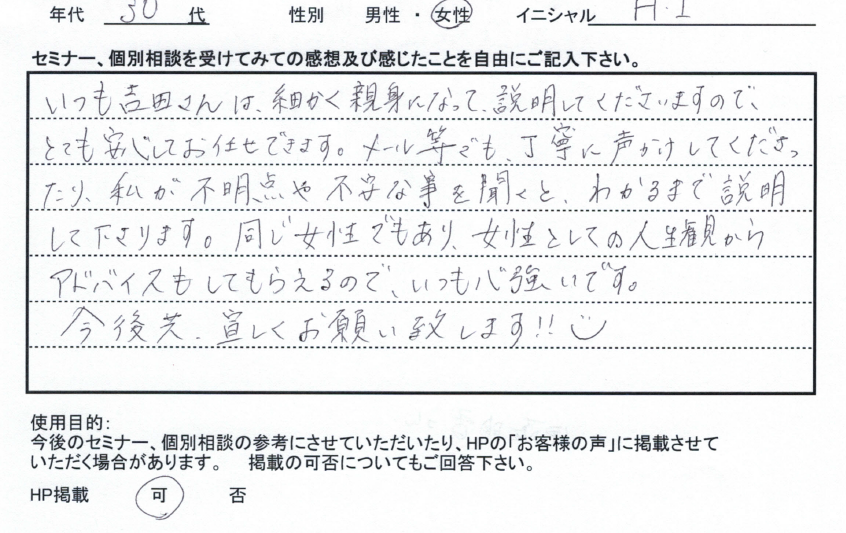 年代 30 代 性別 男性 ・ 女性 イニシャル H.I
セミナー、個別相談を受けてみての感想及び感じたことを自由にご記入下さい。
いつも吉田さんは、細かく親身になって、説明してくださいますので、
とても安心してお任せできます。メール等でも、丁寧に声かけしてくださっ
たり、私が不明点や不安な事を聞くと、わかるまで説明
して下さります。同じ女性でもあり、女性としての人生観から
アドバイスもしてもらえるので、いつも心強いです。
今後共、宜しくお願い致します!!
使用目的:
今後のセミナー、個別相談の参考にさせていただいたり、HPの「お客様の声」に掲載させて
いただく場合があります。 掲載の可否についてもご回答下さい。
HP掲載 可 否